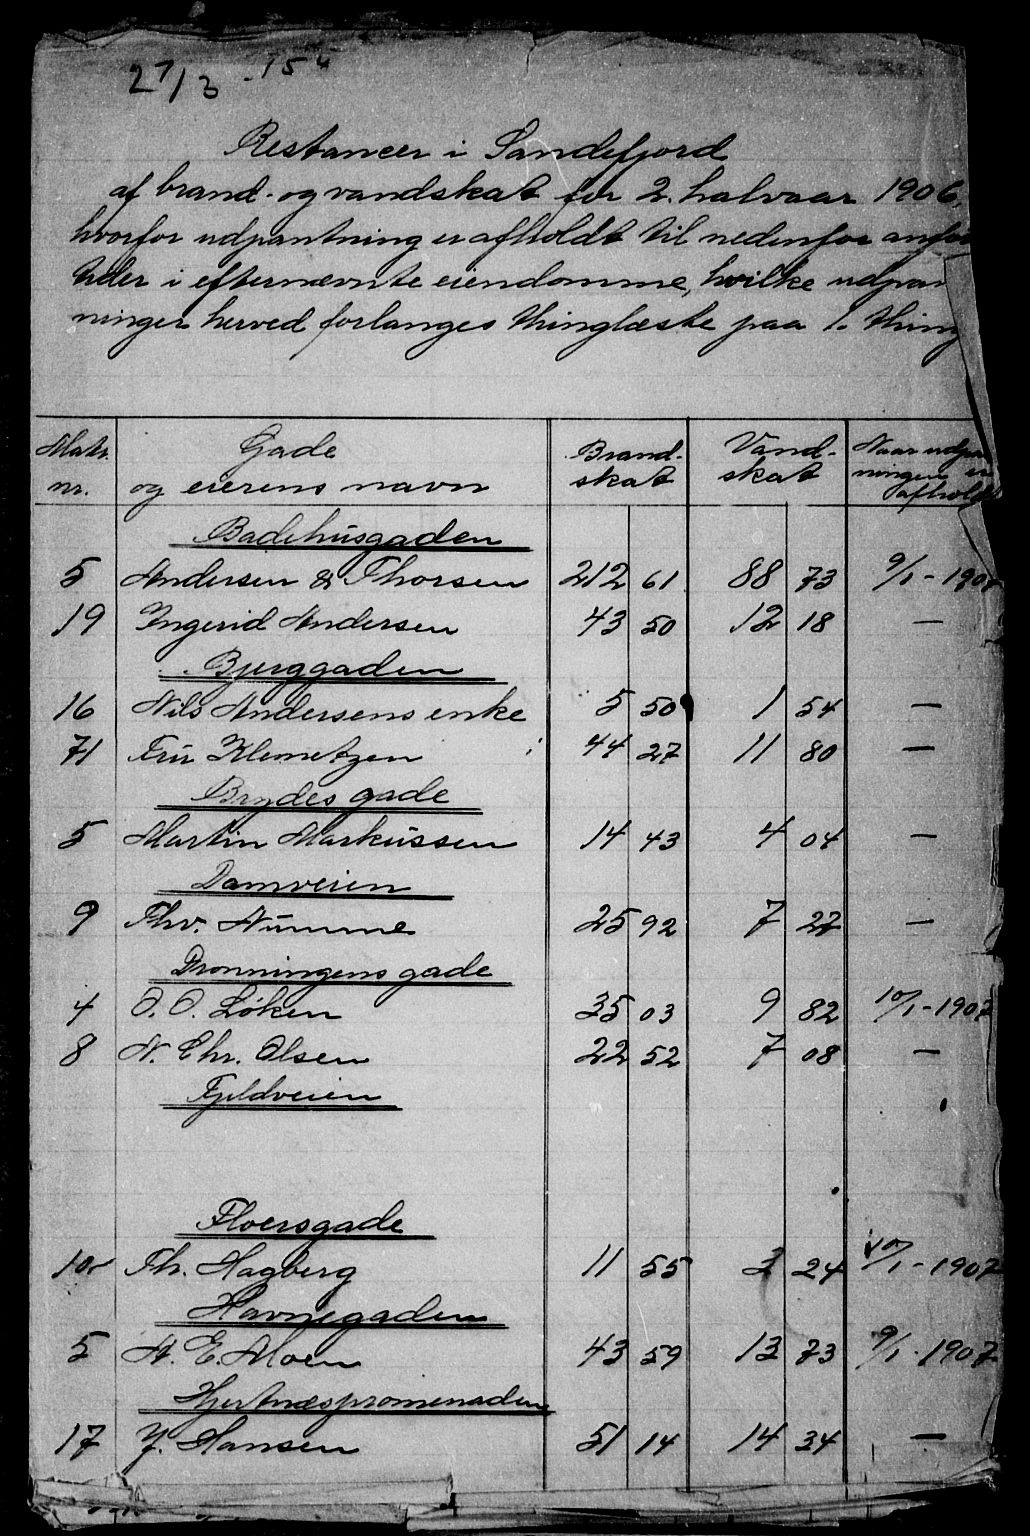 27/3 - 15
Restancer i Sandefjord
af brand- og vandskat for 2. halvaar 1906,
hvorfor udpantning er afholdt til nedenfor anfør
tider i efternævnte eiendomme, hvilke udpan
ninger herved forlanges thinglæste paa 1. thing
Matr. nr. Gade og eierens navn Brand- skat Vand- skat Naar udpa ningen er afholdt
Badehusgaden
5 Andersen & Thorsen 212 61 88 73 9/1 - 1907
19 Ingerid Andersen 43 50 12 18 —
Bjerggaden
16 Nils Andersens enke 5 50 1 54 —
71 Fru Klemetzen 44 27 11 80 —
Brydes gade
5 Martin Markussen 14 43 4 04 —
Damveien
9 Thv. Numme 25 92 7 27 —
Dronningens gade
4 O. O. Løken 35 03 9 82 10/1 - 1907
8 N. Chr. Olsen 22 52 7 08 —
Fjeldveien
Floersgade
10 Th. Hagberg 11 55 3 24 10/1 - 1907
Havnegaden
5 A. E. Moen 43 59 13 73 9/1 - 1907
Hjertnæspromenaden
17 J. Hansen 51 14 14 34 —